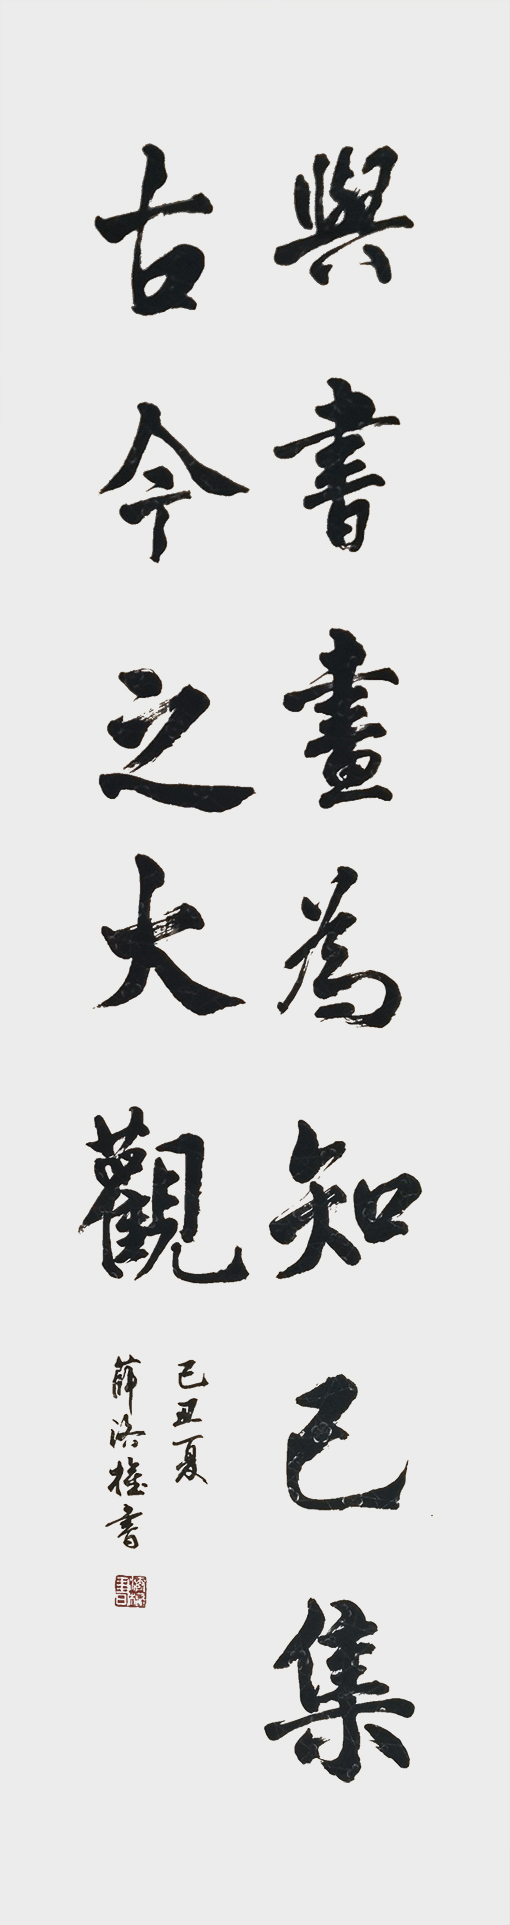 與書畫為知己集
古今之大觀
己丑夏
薛洛權書